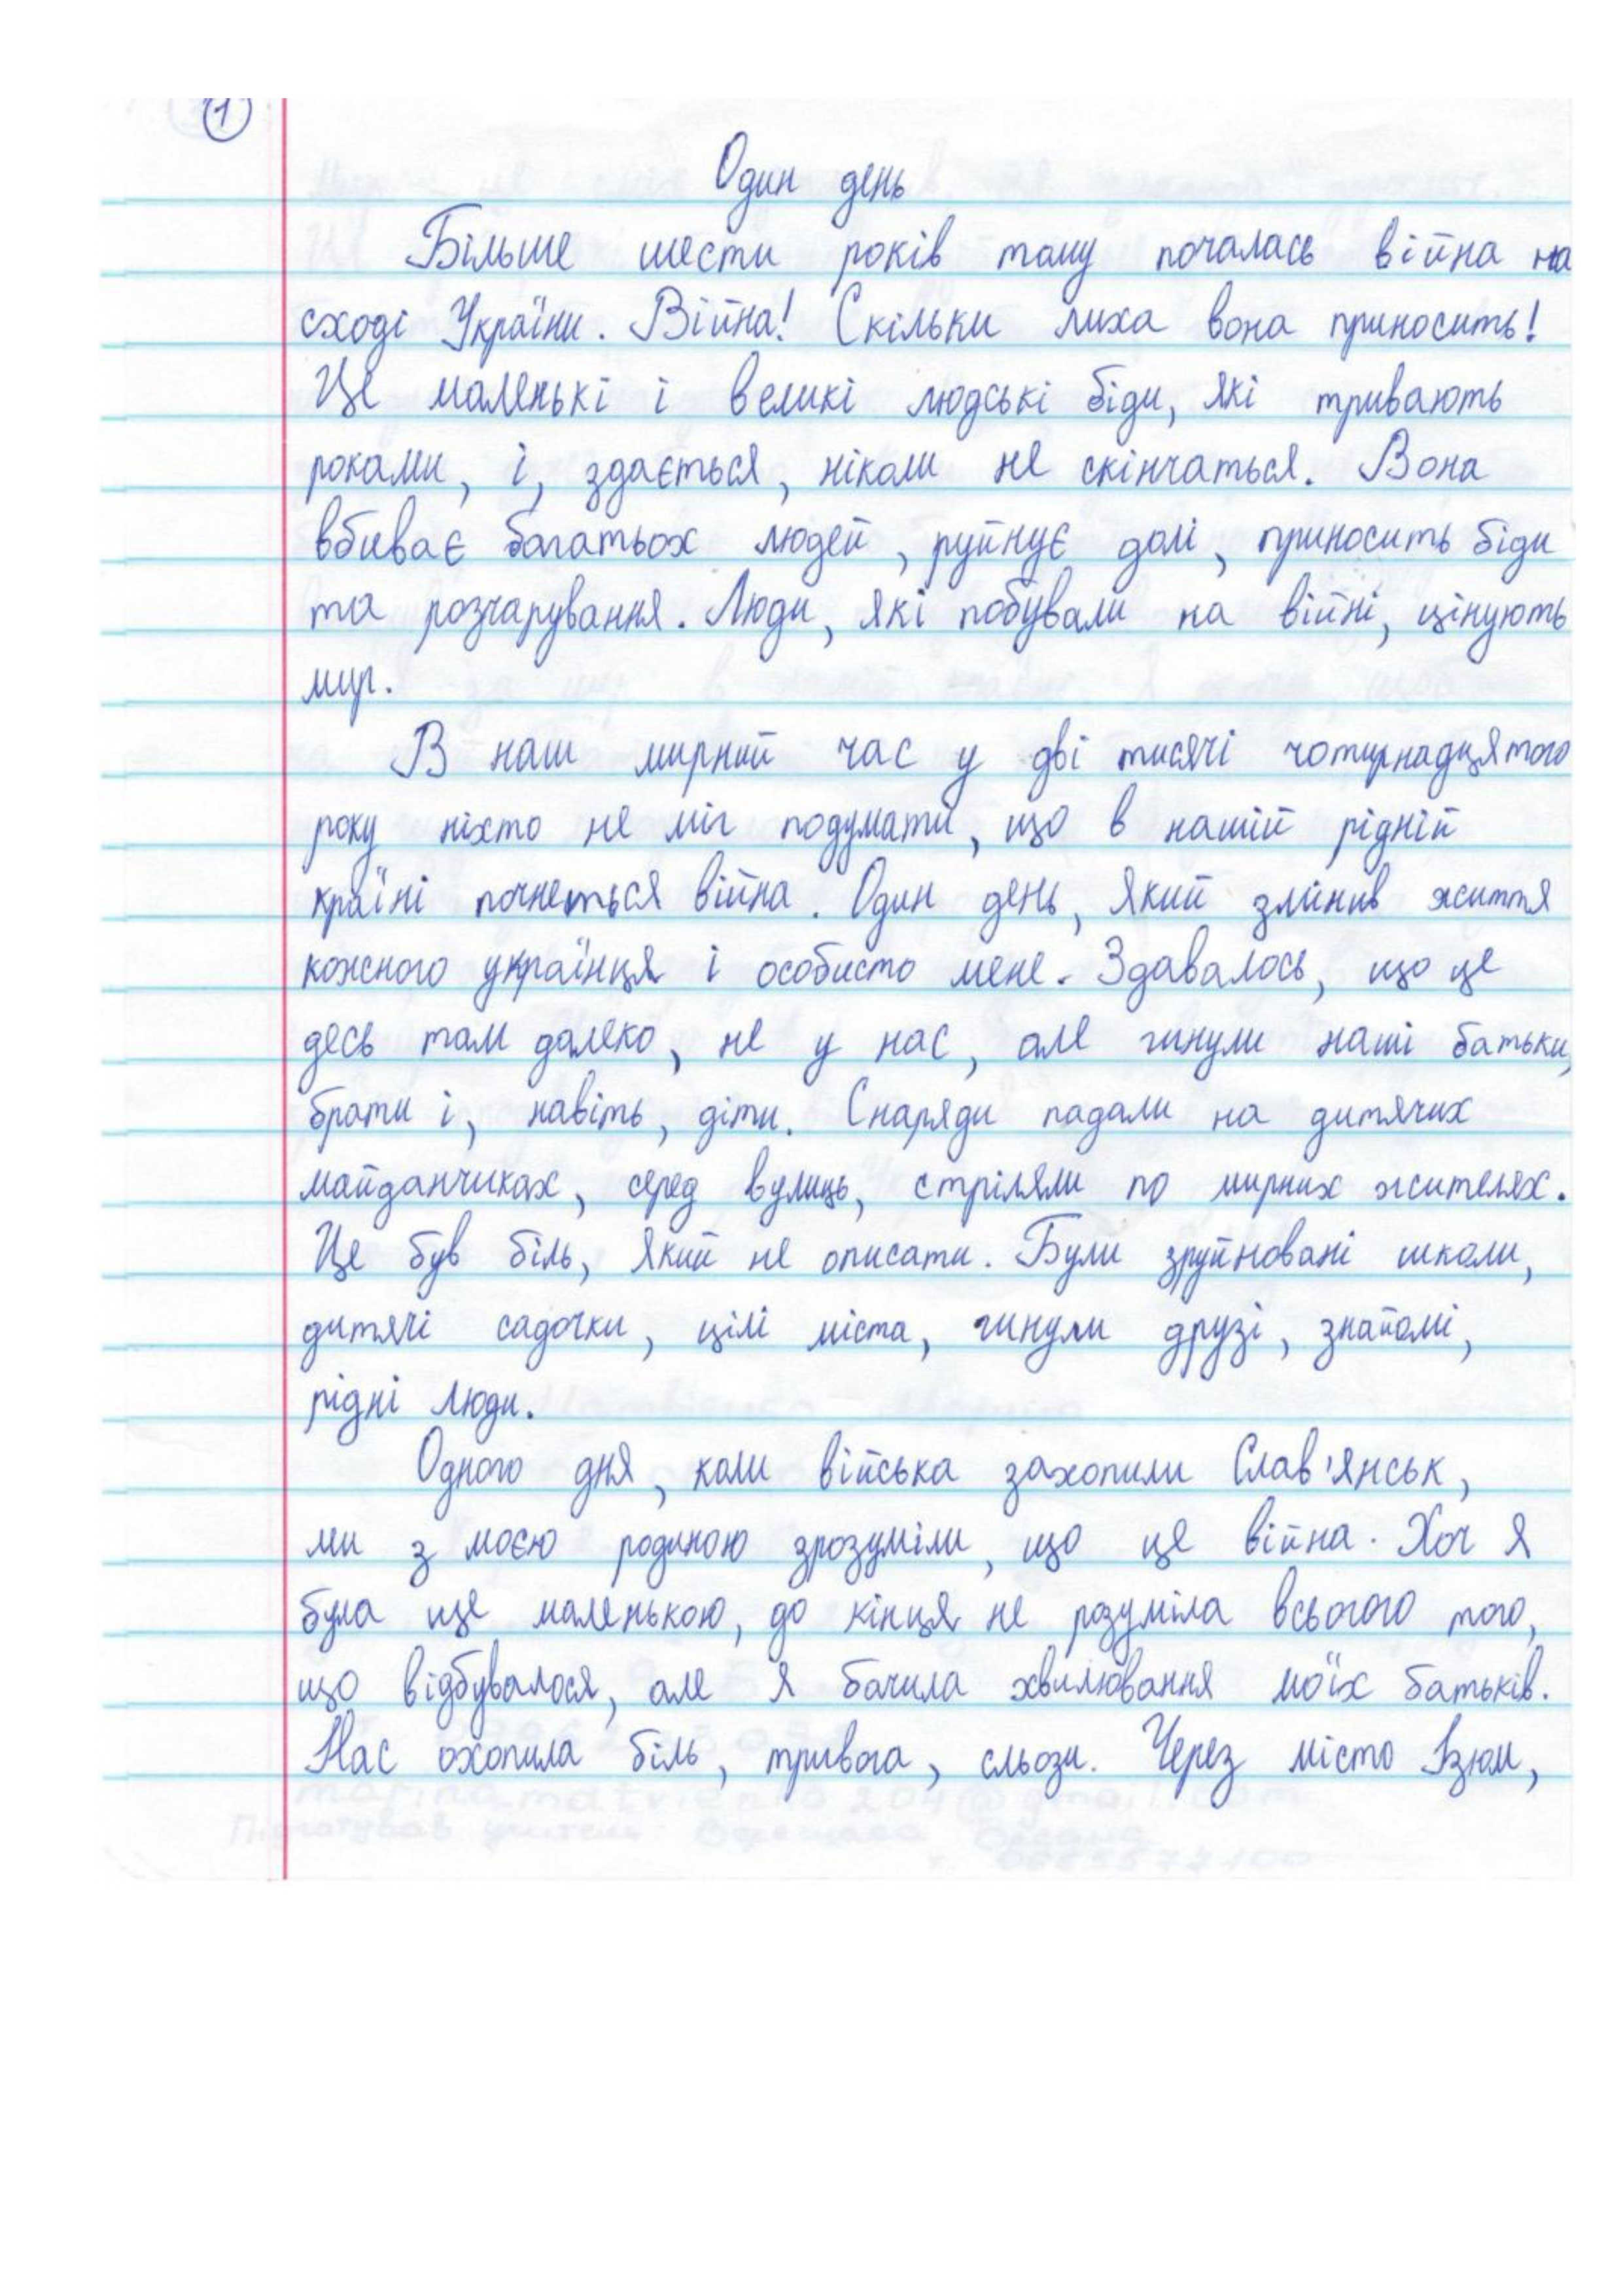 1
Один день
Більше шести років тому почалась війна на
сході України. Війна! Скільки лиха вона приносить!
Це маленькі і великі людські біди, які тривають
роками, і, здається, ніколи не скінчаться. Вона
вбиває багатьох людей, руйнує долі, приносить біди
та розчарування. Люди, які побували на війні, цінують
мир.
В наш мирний час у дві тисячі чотирнадцятого
року ніхто не міг подумати, що в нашій рідній
країні почнеться війна. Один день, який змінив життя
кожного українця і особисто мене. Здавалось, що це
десь там далеко, не у нас, але гинули наші батьки,
брати і, навіть, діти. Снаряди падали на дитячих
майданчиках, серед вулиць, стріляли по мирних жителях.
Це був біль, який не описати. Були зруйновані школи,
дитячі садочки, цілі міста, гинули друзі, знайомі,
рідні люди.
Одного дня, коли війська захопили Слав'янськ,
ми з моєю родиною зрозуміли, що це війна. Хоч я
була ще маленькою, до кінця не розуміла всього того,
що відбувалося, але я бачила хвилювання моїх батьків.
Нас охопила біль, тривога, сльози. Через місто Ізюм,